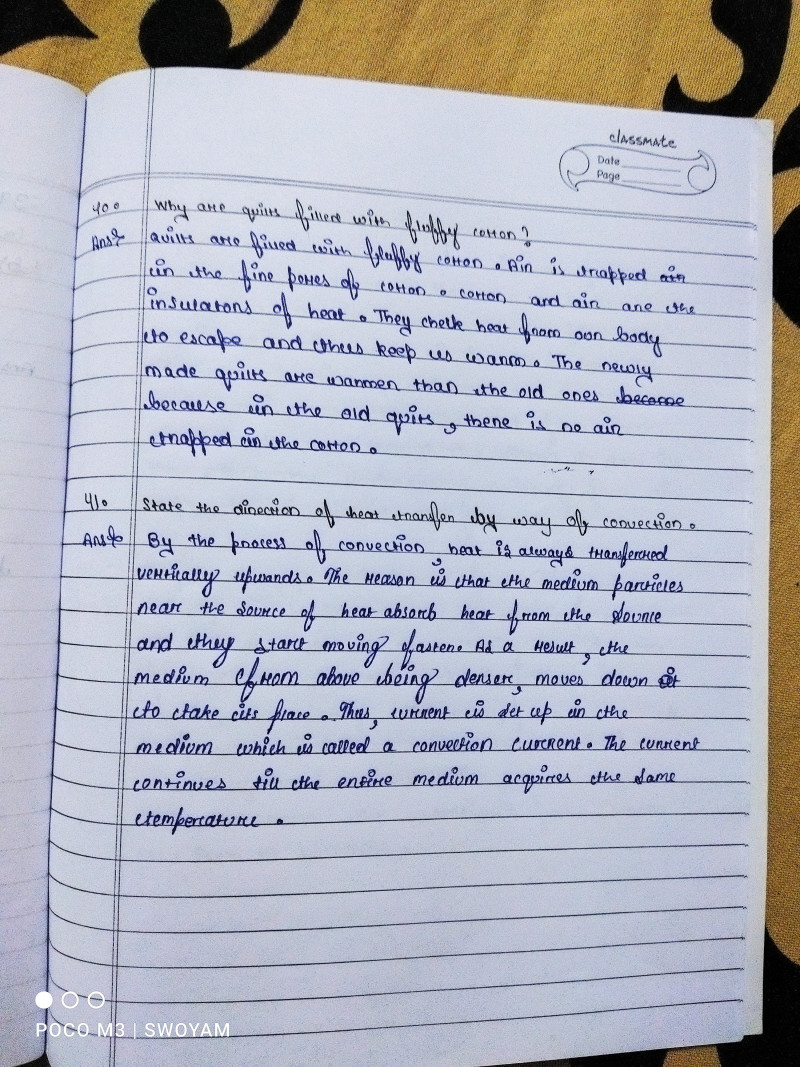 classmate
Date
Page
40. Why are quilts filled with fluffy cotton?
Ans:- Quilts are filled with fluffy cotton. Air is trapped air
in the fine pores of cotton. cotton and air are the
insulators of heat. They check heat from our body
to escape and thus keep us warm. The newly
made quilts are warmer than the old ones become
because in the old quits, there is no air
trapped in the cotton.
41. State the direction of heat transfer by way of convection.
Ans:- By the process of convection, heat is always transferred
vertically upwards. The reason is that the medium particles
near the source of heat absorb heat from the source
and they start moving faster. As a result, the
medium from above being denser, moves down
to take its place. Thus, current is set up in the
medium which is called a convection current. The current
continues till the entire medium acquires the same
temperature.
POCO M3 | SWOYAM